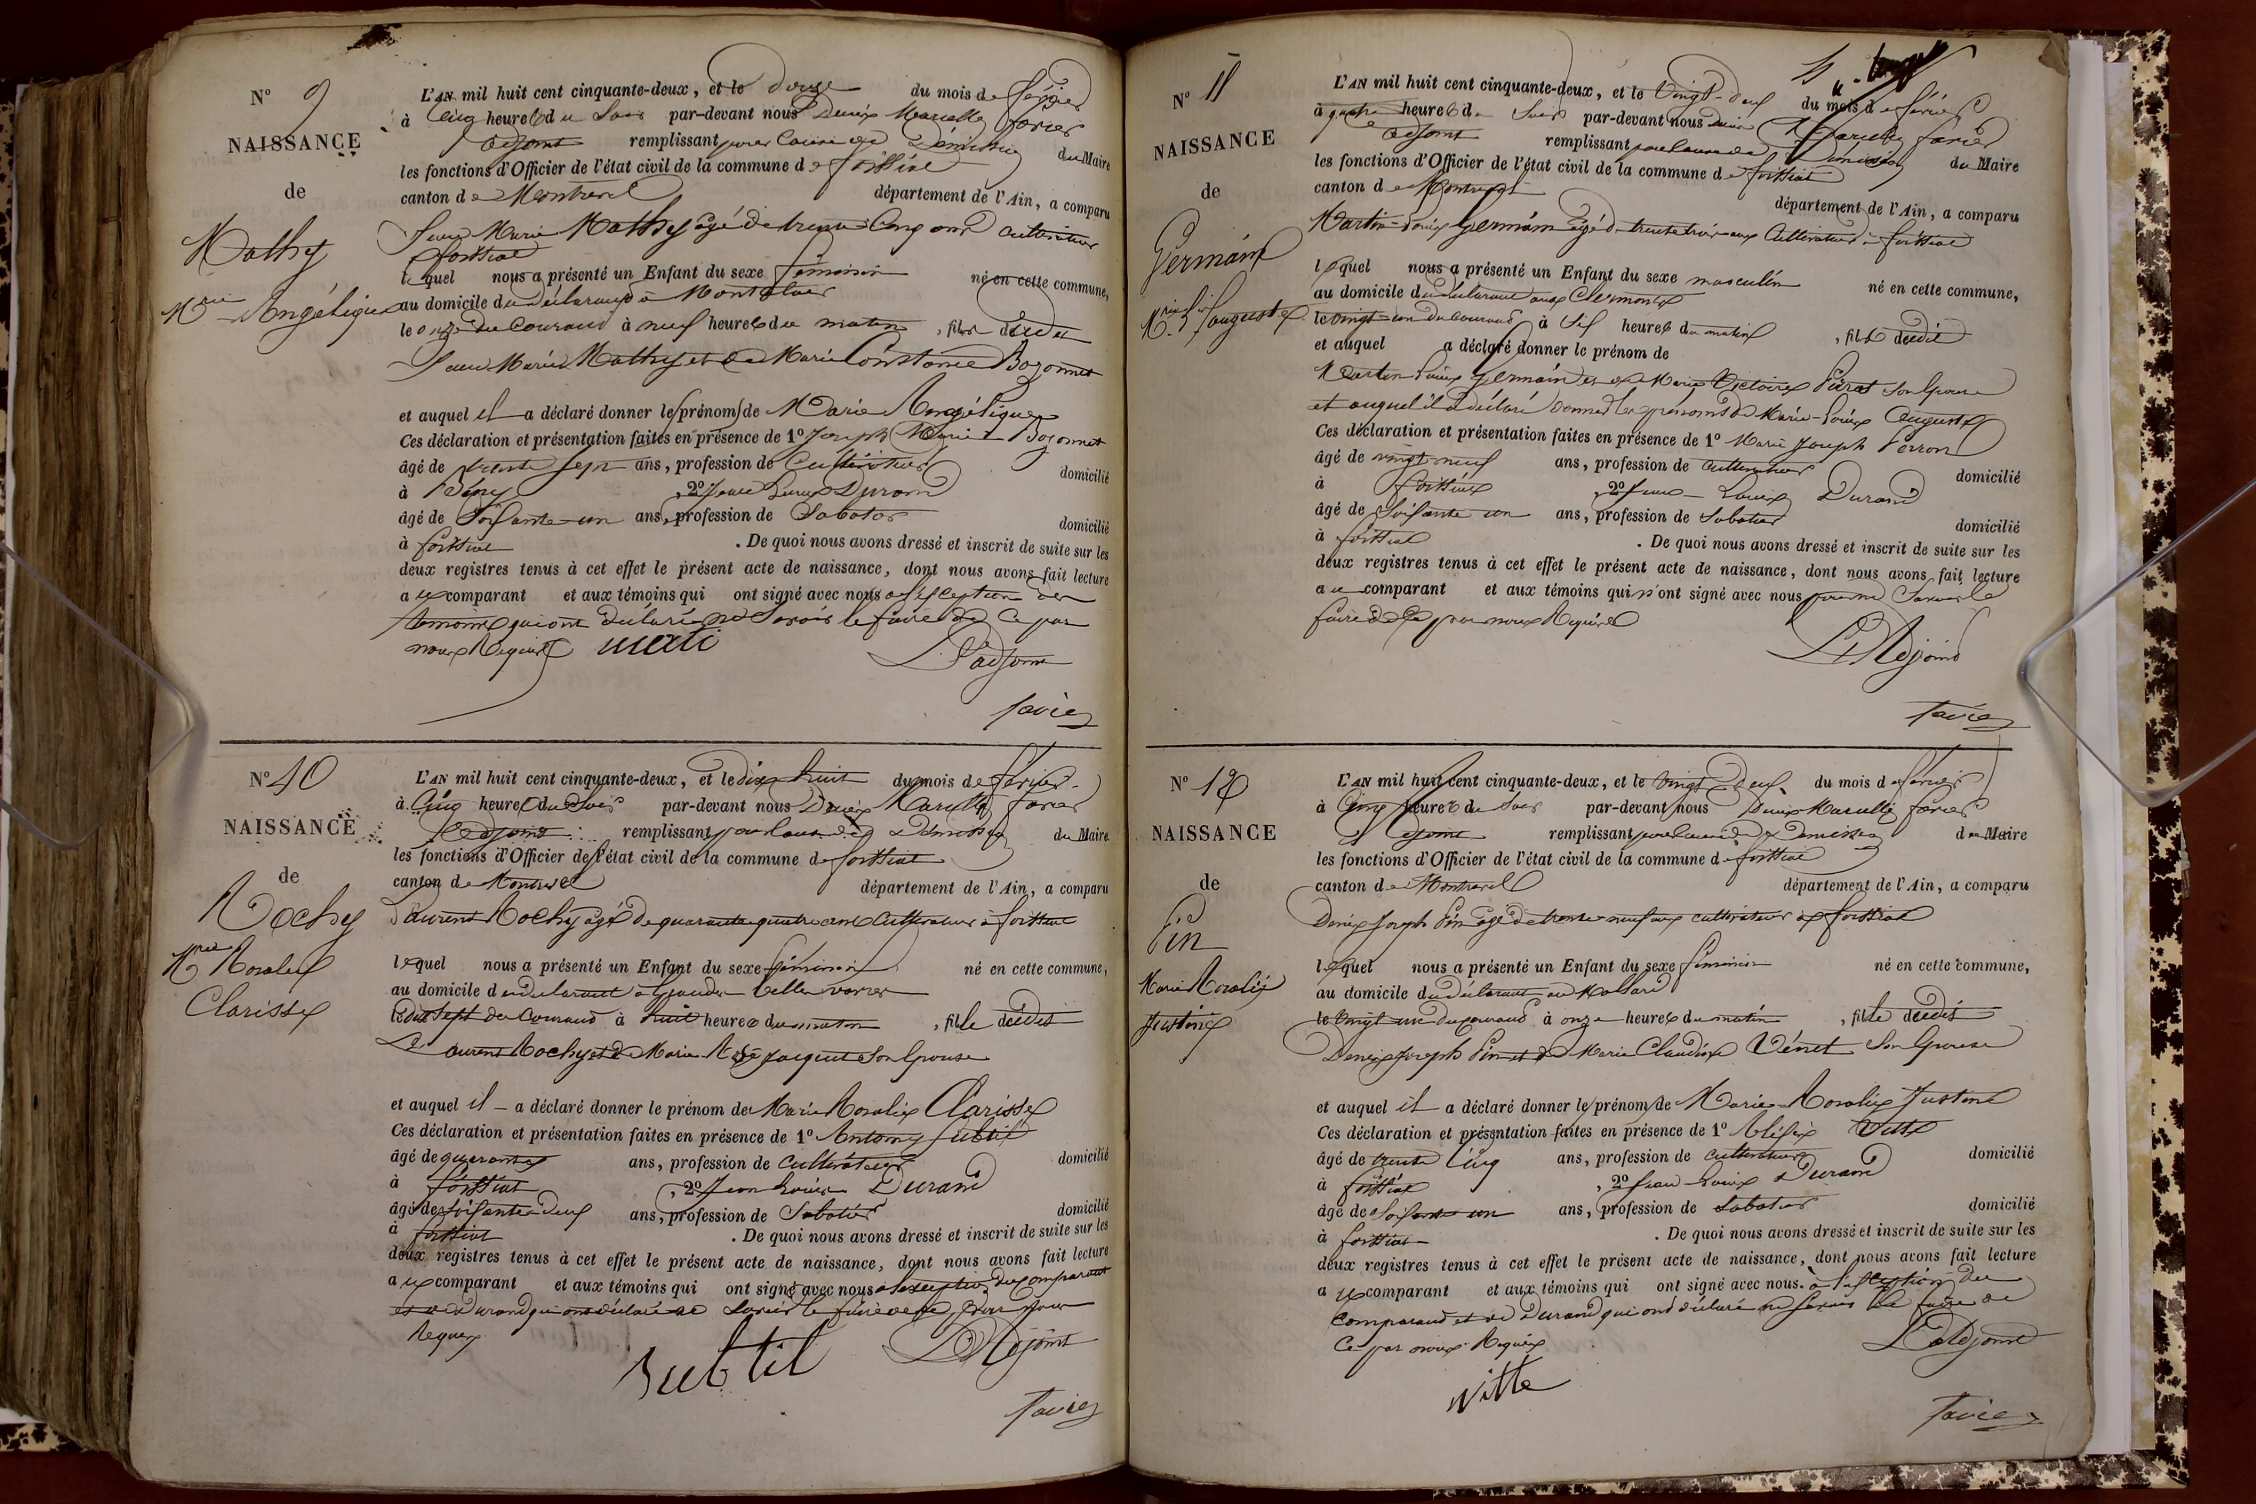 N° 9
NAISSANCE
de
Mathy
M.rie Angélique
L'AN mil huit cent cinquante-deux, et le douze du mois de février
à Cinq heures du Soir par-devant nous Denis Marcelle favier
adjoint remplissant pour cause de Démission du Maire
les fonctions d'Officier de l'état civil de la commune de forssiat
canton de Montrevel département de l'Ain, a comparu
Marie Mathy agé de trente Cinq ans Cultivateur
forssiat
lequel nous a présenté un Enfant du sexe féminin né en cette commune,
au domicile du déclarant à
le onze du Courant à neuf heures du matin, fille dudit
Marie Mathy et de Marie Constance Bozonnet
et auquel il a déclaré donner les prénoms de Marie Angélique
Ces déclaration et présentation faites en présence de 1° Joseph Marie Bozonnet
âgé de trente sept ans, profession de Cultivateur domicilié
à Bény, 2° Jean Louis Durand
âgé de Soissante un ans, profession de Sabotier domicilié
à forssiat. De quoi nous avons dressé et inscrit de suite sur les
deux registres tenus à cet effet le présent acte de naissance, dont nous avons fait lecture
au comparant et aux témoins qui ont signé avec nous a l'exception des
témoins qui ont déclaré ne Savoir le faire de Ce par
nous Requis
L'adjoint
favier
N° 10
NAISSANCE
de
Rochy
M.rie Rosalie
Clarisse
L'AN mil huit cent cinquante-deux, et le dix huit du mois de février
à Cinq heures du Soir par-devant nous Denis Marcelle favier
adjoint remplissant pour cause de Démission du Maire
les fonctions d'Officier de l'état civil de la commune de forssiat
canton de Montrevel département de l'Ain, a comparu
Laurent Rochy agé de quarante quatre ans Cultivateur à forssiat
lequel nous a présenté un Enfant du sexe féminin né en cette commune,
au domicile du déclarant à
le dix sept du Courant à huit heures du matin, fille dudit
Laurent Rochy et de Marie Rose Jacquet Son Epouse
et auquel il a déclaré donner le prénom de Marie Rosalie Clarisse
Ces déclaration et présentation faites en présence de 1° Antoine Subtil
âgé de quarante ans, profession de Cultivateur domicilié
à forssiat, 2° Jean Louis Durand
âgé de Soissante deux ans, profession de Sabotier domicilié
à forssiat. De quoi nous avons dressé et inscrit de suite sur les
deux registres tenus à cet effet le présent acte de naissance, dont nous avons fait lecture
au comparant et aux témoins qui ont signé avec nous a l'exception du Comparant
et de Durand qui ont déclaré ne Savoir le faire de Ce par nous
Requis
Subtil
L'Adjoint
favier
N° 11
NAISSANCE
de
Germain
M.rie Auguste
L'AN mil huit cent cinquante-deux, et le vingt-deux du mois de février
à quatre heures du Soir par-devant nous Denis Marcelle favier
adjoint remplissant pour cause de Démission du Maire
les fonctions d'Officier de l'état civil de la commune de forssiat
canton de Montrevel département de l'Ain, a comparu
Martin-Louis Germain agé de trente trois ans Cultivateur à forssiat
lequel nous a présenté un Enfant du sexe masculin né en cette commune,
au domicile du déclarant aux Clermont
le vingt-un du Courant à Six heures du matin, fils dudit
et auquel a déclaré donner le prénom de
Martin Louis Germain et de Marie Victoire Pérat Son Epouse
et auquel il a déclaré donner les prénoms de Marie-Louis Auguste
Ces déclaration et présentation faites en présence de 1° Marie Joseph Perron
âgé de vingt neuf ans, profession de Cultivateur domicilié
à forssiat, 2° Jean-Louis Durand
âgé de Soissante un ans, profession de Sabotier domicilié
à forssiat. De quoi nous avons dressé et inscrit de suite sur les
deux registres tenus à cet effet le présent acte de naissance, dont nous avons fait lecture
au comparant et aux témoins qui n'ont signé avec nous pour ne Savoir le
faire de Ce par nous Requis
L'Adjoint
favier
N° 12
NAISSANCE
de
Pin
Marie Rosalie
Justine
L'AN mil huit cent cinquante-deux, et le vingt Deux du mois de février
à Cinq heures du Soir par-devant nous Denis Marcelle favier
adjoint remplissant pour cause de Démission du Maire
les fonctions d'Officier de l'état civil de la commune de forssiat
canton de Montrevel département de l'Ain, a comparu
Denis Joseph Pin agé de trente neuf ans cultivateur à forssiat
lequel nous a présenté un Enfant du sexe féminin né en cette commune,
au domicile du déclarant au Molard
le vingt un du Courant à onze heures du matin, fille dudit
Denis Joseph Pin et de Marie Claudine Vénet Son Epouse
et auquel il a déclaré donner les prénoms de Marie Rosalie Justine
Ces déclaration et présentation faites en présence de 1° Vitte
âgé de trente Cinq ans, profession de Cultivateur domicilié
à forssiat, 2° Jean-Louis Durand
âgé de Soissante un ans, profession de Sabotier domicilié
à forssiat. De quoi nous avons dressé et inscrit de suite sur les
deux registres tenus à cet effet le présent acte de naissance, dont nous avons fait lecture
au comparant et aux témoins qui ont signé avec nous à l'exception du
comparant et de Durand qui ont déclaré ne Savoir le faire de
Ce par nous Requis
L'adjoint
vitte
favier